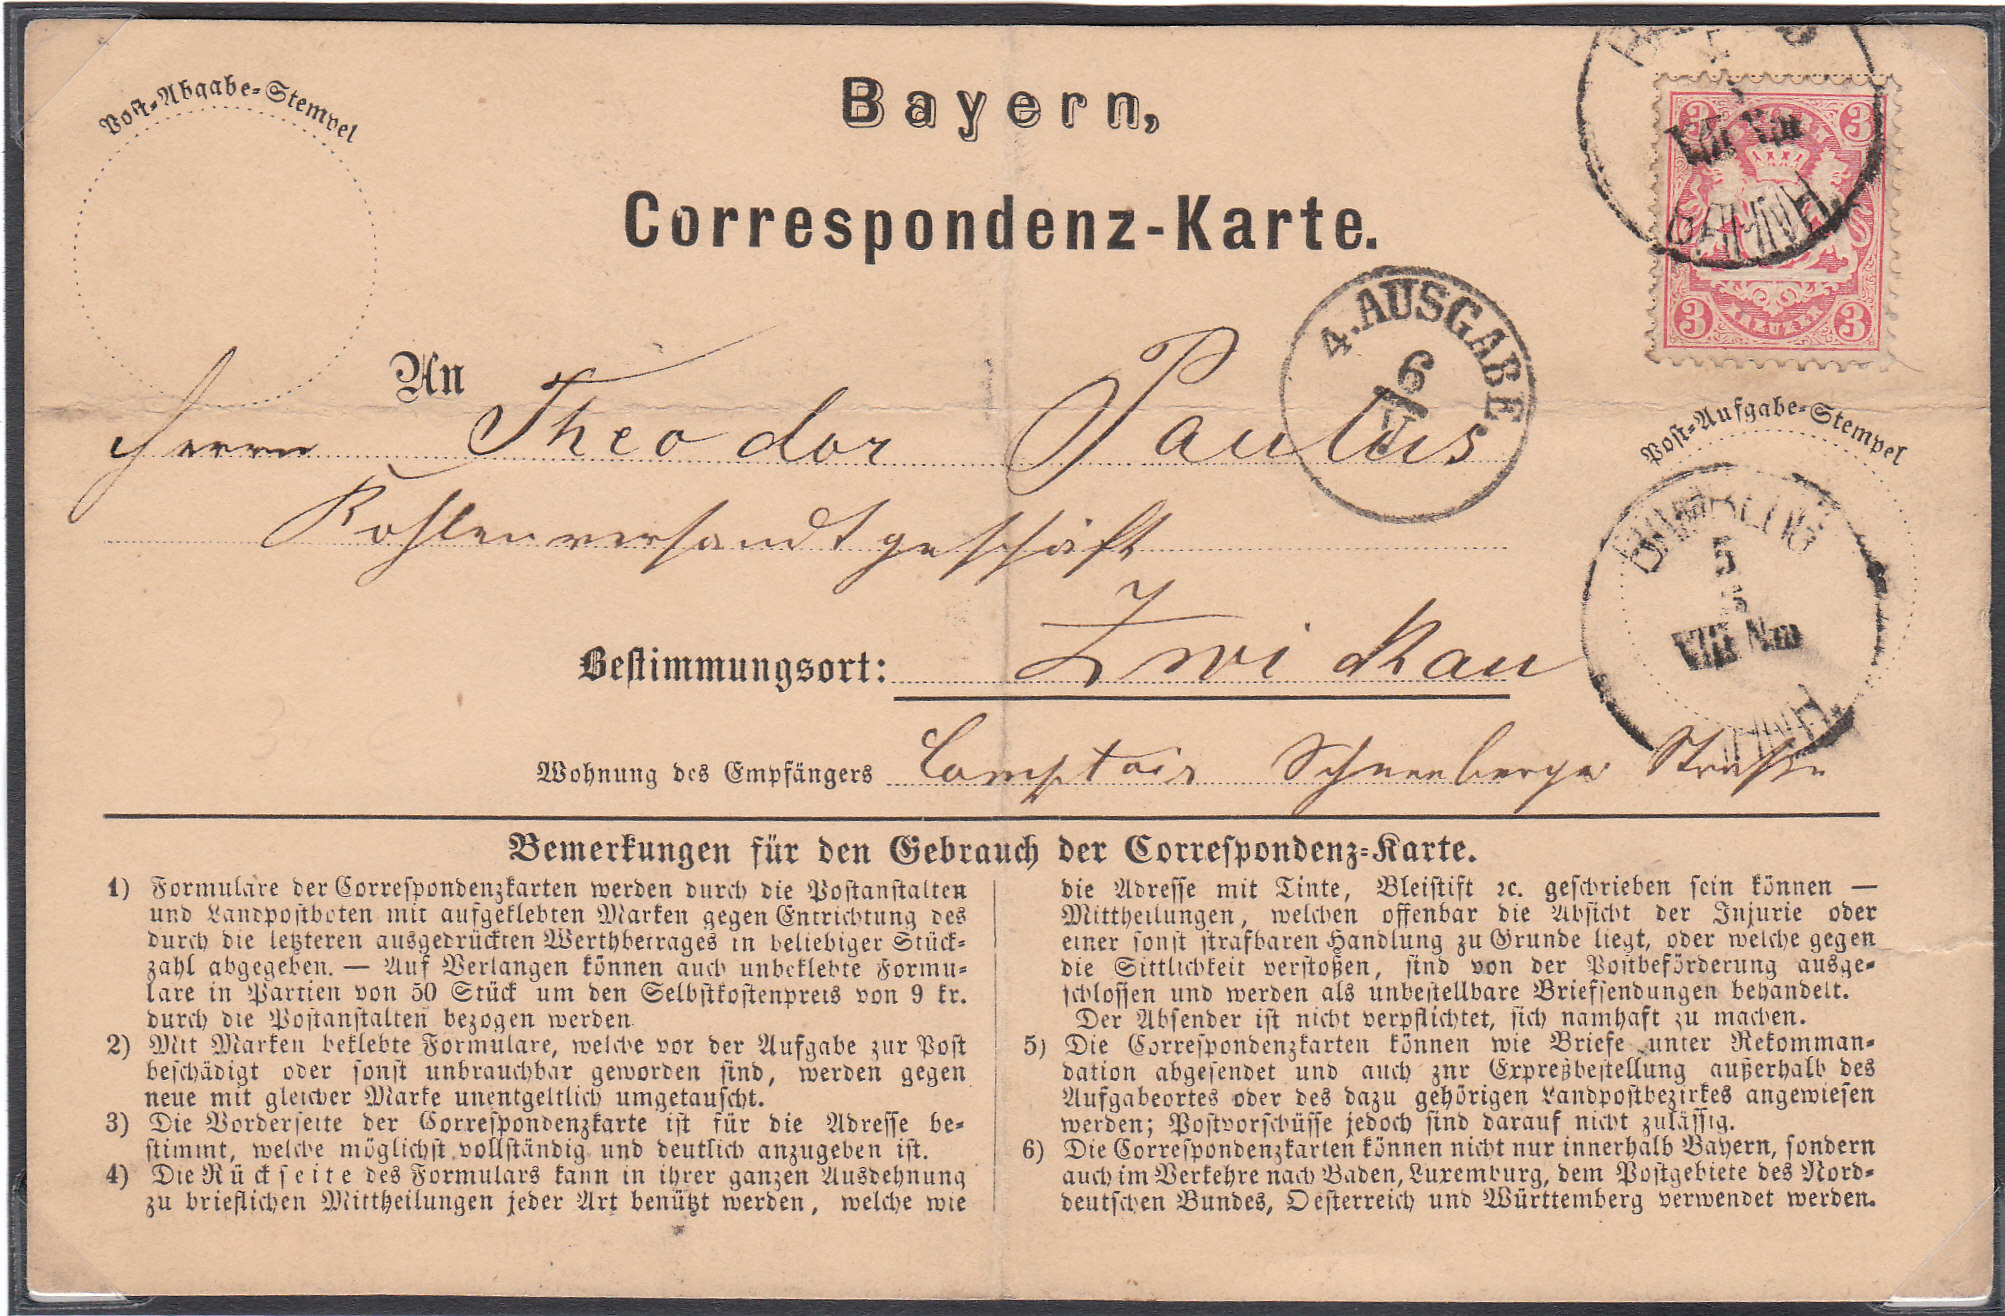 Bayern,
Correspondenz-Karte.
Post-Abgabe-Stempel
3 3
VIII Nm
BAHNH.
3 KREUZER 3
4. AUSGABE.
6
V
An
Herrn Theodor Paulus
Kohlenversandtgeschäft
Post-Aufgabe-Stempel
BAMBERG
5
5
VIII Nm
BAHNH.
Bestimmungsort: Zwickau
Wohnung des Empfängers Comptoir Schneeberger Straße
Bemerkungen für den Gebrauch der Correspondenz-Karte.
1) Formulare der Correspondenzkarten werden durch die Postanstalten
und Landpostboten mit aufgeklebten Marken gegen Entrichtung des
durch die letzteren ausgedrückten Werthbetrages in beliebiger Stück-
zahl abgegeben. — Auf Verlangen können auch unbeklebte Formu-
lare in Partien von 50 Stück um den Selbstkostenpreis von 9 kr.
durch die Postanstalten bezogen werden
2) Mit Marken beklebte Formulare, welche vor der Aufgabe zur Post
beschädigt oder sonst unbrauchbar geworden sind, werden gegen
neue mit gleicher Marke unentgeltlich umgetauscht.
3) Die Vorderseite der Correspondenzkarte ist für die Adresse be-
stimmt, welche möglichst vollständig und deutlich anzugeben ist.
4) Die Rückseite des Formulars kann in ihrer ganzen Ausdehnung
zu brieflichen Mittheilungen jeder Art benützt werden, welche wie
die Adresse mit Tinte, Bleistift ꝛc. geschrieben sein können —
Mittheilungen, welchen offenbar die Absicht der Injurie oder
einer sonst strafbaren Handlung zu Grunde liegt, oder welche gegen
die Sittlichkeit verstoßen, sind von der Postbeförderung ausge-
schlossen und werden als unbestellbare Briefsendungen behandelt.
Der Absender ist nicht verpflichtet, sich namhaft zu machen.
5) Die Correspondenzkarten können wie Briefe unter Rekomman-
dation abgesendet und auch znr Expreßbestellung außerhalb des
Aufgabeortes oder des dazu gehörigen Landpostbezirkes angewiesen
werden; Postvorschüsse jedoch sind darauf nicht zulässig.
6) Die Correspondenzkarten können nicht nur innerhalb Bayern, sondern
auch im Verkehre nach Baden, Luxemburg, dem Postgebiete des Nord-
deutschen Bundes, Oesterreich und Württemberg verwendet werden.